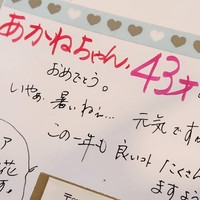 あかねちゃん、43才
おめでとう。
いやぁ 暑いねぇ…
元気ですか
この一年も 良いコトたくさん
ますよう
ア
花
す。